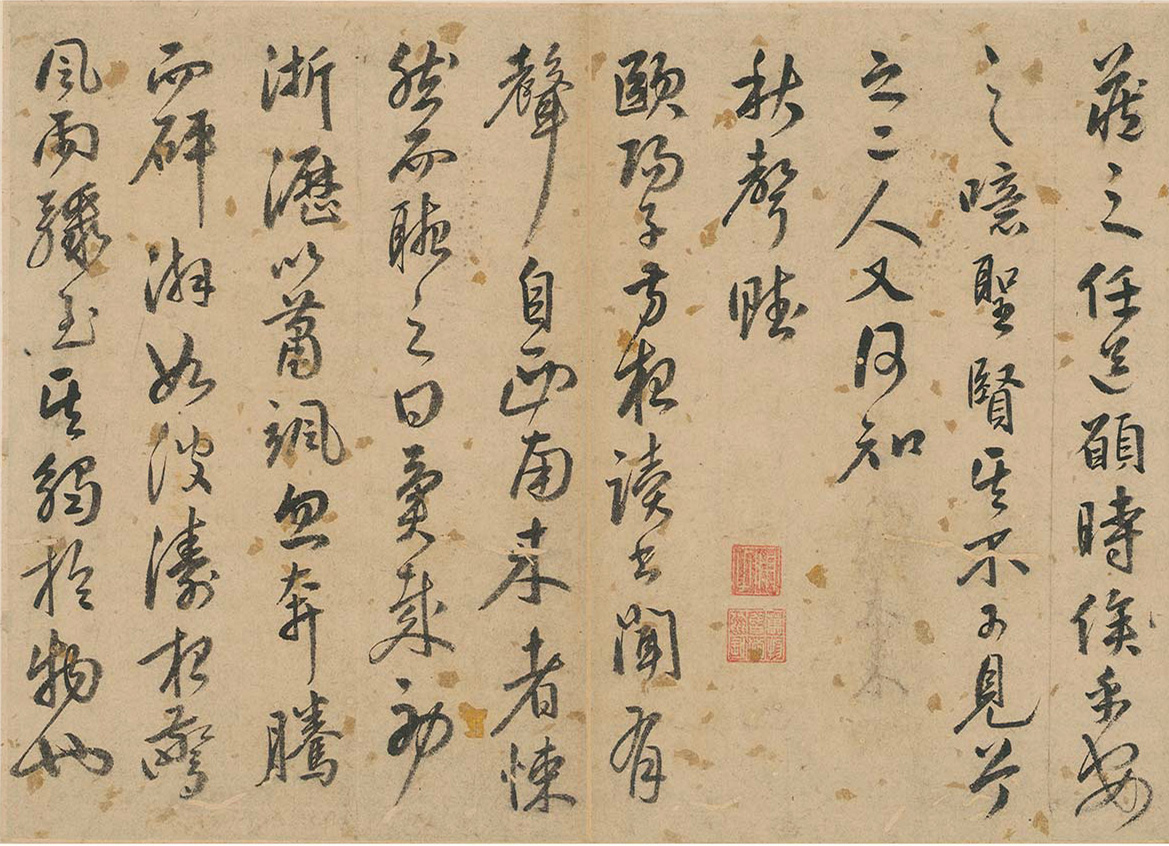 藏之任道願時俟乎安
之噫聖賢其不可見兮
之二人又何知
秋聲賦
歐陽子方夜讀書聞有
聲自西南来者悚
然而聽之曰異哉初
淅瀝以蕭颯忽奔騰
而砰湃如波濤夜驚
風雨驟至其觸於物也